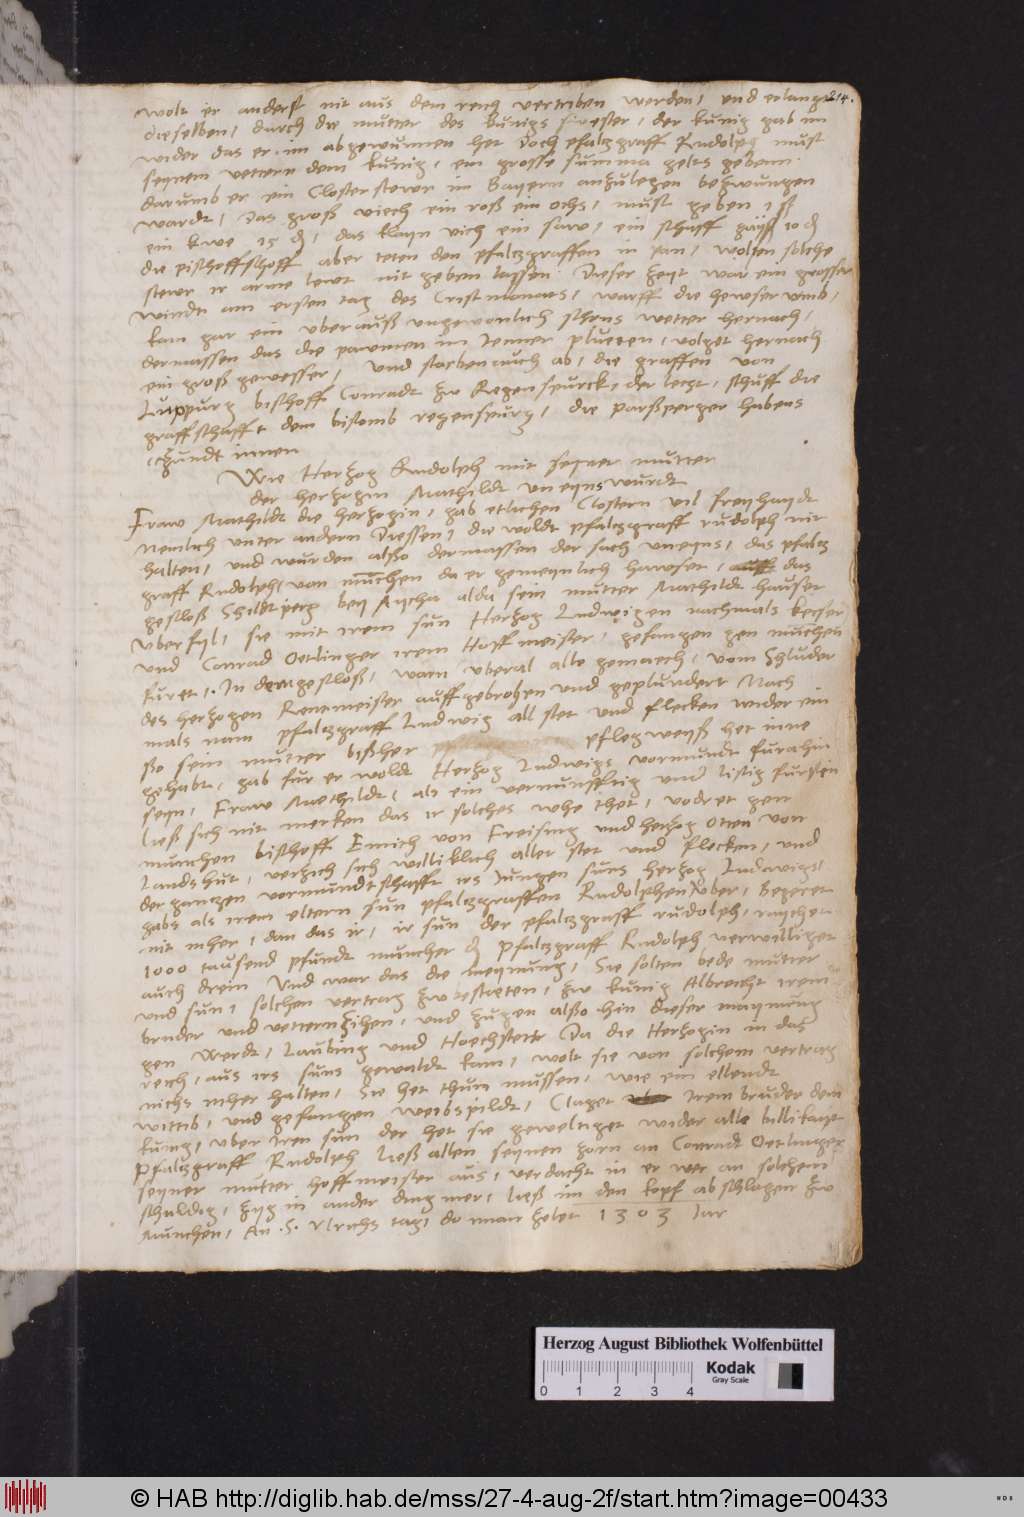 214.
wolt er anderst nit aus dem reich vertriben werden / und erlangt
dieselben / durch die mutter des kunigs swester / der kunig gab im
wider das er im abgewunnen het Doch pfaltzgraff Rudolph must
seynem vettern dem kunig / ein grosse summa gelts gebenn.
darumb er ein Closterstewr im Bayern anzulegen bezwungen
wardt / Das groß viech ein roß ein ochs / must geben 1 ß
ein kwe 15 ₰ / das klayn vich ein saw / ein schaff gayß 10 ₰
die pischoff schoff aber teten den pfaltzgraffen in pan / wolten solche
stewr ir arme lewt nit geben lassen. Dieser zeyt war ein grosser
windt am ersten tag des Cristmonats / warff die hewser umb /
kam gar ein uberauß ungewonlich schons wetter hernach /
dermassen das die pawmen im Jenner plueeten / volget hernach
ein groß gewesser / und starben auch ab / die graffen von
Lupppurg bischoff Conradt zw Regenspurck / der letzt / schuff die
graffschafft dem bistomb regenspurg / die parßperger habens
ytzundt innen
Wie Hertzog Rudolph mit seyner mutter
der hertzogin Mathildt uneyns wurdt
Fraw Mathildt die hertzogin / gab etlichen Clostern vil freyhaydt
Nemlich unter andern Diessen / die woldt pfaltzgraff rudolph nit
halten / und wurden alßo dermassen der sach uneyns / das pfaltz
graff Rudolph / von munchen da er gemeynlich hawset / das
gschloß Schiltperg bey Aycha alda sein mutter Mathildt hauset
uberfyl / sie mit irem sun Hertzog Ludwigen nachmals keeser
und Conrad Oetlinger irem Hoffmeister / gefangen gen munchen
furet / In dem geschloß / warn uberal alle gemaech / vom Schluder
des hertzogen Rentmeister auffgebrochen und geplundert Nach
mals nam pfaltzgraff Ludwig all stet und flecken wider ein
ßo sein mutter bißher pflegweyß het inne
gehabt / gab fur er woldt Hertzog Ludwigs vormundt furahin
seyn / Fraw Mathildt / als ein vernunfftig und listig furstin
ließ sich nit merken das ir solches whe thet / vodret gen
munchen bischoff Emich von Freising und hertzog Otten von
Landshut / verzich sich williklich aller stet und flecken / und
der gantzen vormundtschafft irs Jungen suns hertzog Ludwigs /
gabs als irem eltern sun pfaltzgraffen Rudolphen uber / Begeret
nit mher / dan das ir / ir sun der pfaltzgraff rudolph / raychet
1000 tausend pfundt muncher ₰ Pfaltzgraff Rudolph verwilliget
auch drein Und war das die meynung / Sie solten bede mutter
und sun / solchen vertrag zw bestaeten / zw kunig Albrecht irem
bruder und vettern zihen / und zugen alßo hin dieser maynung
gen Werdt / Laubing und Hoechstett Da die Hertzogin in das
reich / aus irs suns gewaldt kam / wolt sie von solchem vertrag
nichs mher halten / Sie het thun mussen / wie ein ellendt
wittib / und gefangen weibspildt / Claget irem bruder dem
kunig / uber iren sun der het sie geweltiget wider alle billikayt
Pfaltzgraff Rudolph ließ allen seynen zorn an Conradt Oetlinger
seyner mutter hoffmeister aus / verdacht in er wer an solchem
schuldig / zyg in ander ding mer / ließ im den kopf abschlagen zw
Munchen / An .S. Ulrichs tag / do man zelet 1303 Jar
Herzog August Bibliothek Wolfenbüttel
0 1 2 3 4
Kodak
Gray Scale
© HAB http://diglib.hab.de/mss/27-4-aug-2f/start.htm?image=00433